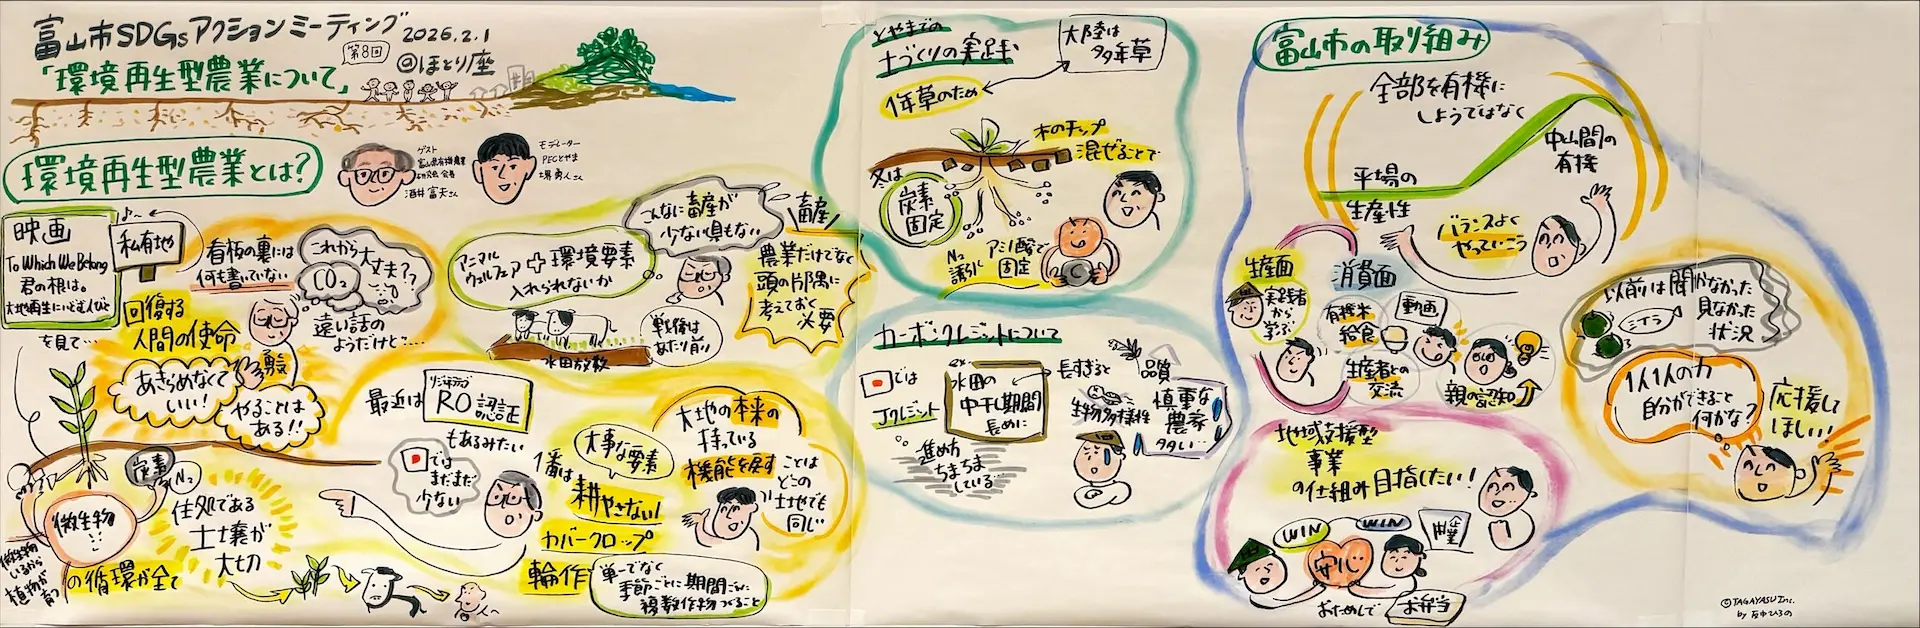 富山市SDGsアクションミーティング
2026.2.1
第8回
@ほとり座
「環境再生型農業について」
環境再生型農業とは?
ゲスト
富山県有機農業
研究会 会長
酒井 富夫さん
モデレーター
PECとやま
堺 勇人さん
映画
To Which We Belong
君の根は。
大地再生にいどむ人びと
を見て…
私有地
看板の裏には
何も書いていない
これから大丈夫??
CO₂
遠い話の
ようだけど…
回復する
人間の使命
あきらめなくて
いい!
やることは
ある!!
炭素
N₂
微生物
の循環が全て
微生物
いるから
植物が
育つ
住処である
土壌が
大切
アニマル
ウェルフェア
+
環境要素
入れられないか
こんなに畜産が
少ない県もない
水田放牧
戦後は
あたり前
畜産
農業だけでなく
頭の片隅に
考えておく
必要
最近は
リジェネラティブ
RO認証
もあるみたい
では
まだまだ
少ない
大事な要素
1番は
耕やさない!
カバークロップ
輪作
単一でなく
季節ごとに期間ごとに
複数作物つくること
大地の本来の
持っている
機能を戻す
ことは
どこの
土地でも
同じ
とやまでの
土づくりの実践は
大陸は
多年草
1年草のため
木のチップ
混ぜることで
冬は
炭素
固定
N₂
誘引に
アミノ酸で
固定
カーボンクレジットについて
では
Jクレジット
水田の
中干し期間
長めに
長すぎると
生物多様性
品質
慎重な
農家
多い…
進め方
ちまちま
している…
富山市の取り組み
全部を有機に
しようではなく
平場の
生産性
中山間の
有機
バランスよく
やっていこう
生産面
実践者
から
学ぶ
消費面
有機米
給食
動画
生産者との
交流
親の認知
以前は聞かなかった
見なかった
状況
1人1人の力
自分ができること
何かな?
応援して
ほしい!
地域支援型
事業
の仕組み目指したい!
WIN
WIN
安心
おためしで
お弁当
©TAGAYASU Inc.